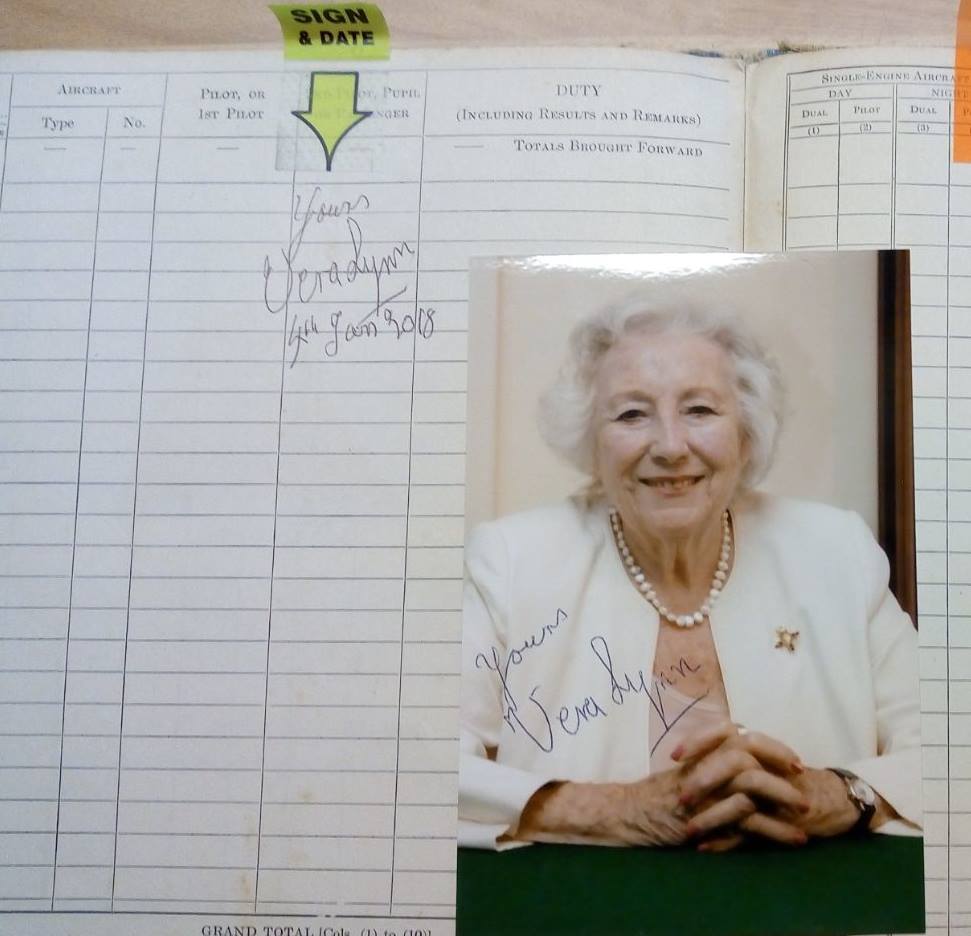 SIGN
& DATE
AIRCRAFT
Type
No.
PILOT, OR
1ST PILOT
PILOT, PUPIL
DUTY
(INCLUDING RESULTS AND REMARKS)
TOTALS BROUGHT FORWARD
Yours
Vera Lynn
4th Jan 2018
GRAND TOTAL [Cols. (1) to (10)]
SINGLE-ENGINE AIRCRAFT
DAY
DUAL
PILOT
DUAL
(1)
(2)
(3)
Yours
Vera Lynn